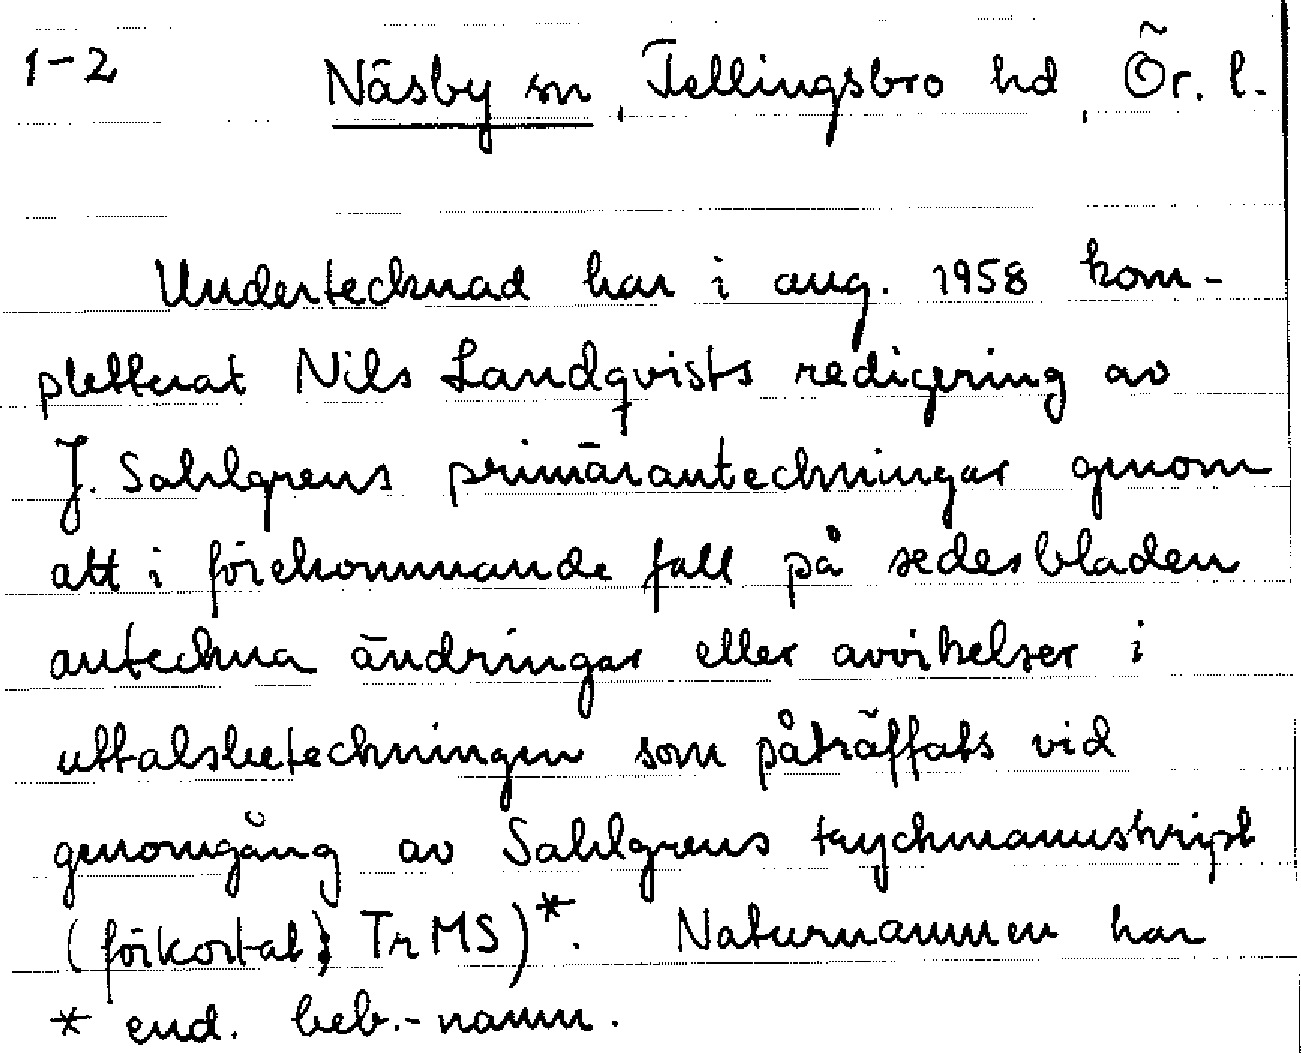 1-2 Näsby sn, Fellingsbro hd, Ör. l.
Undertecknad har i aug. 1958 kom-
pletterat Nils Landqvists redigering av
J. Sahlgrens primäranteckningar genom
att i förekommande fall på sedesbladen
anteckna ändringar eller avvikelser i
uttalsbeteckningen som påträffats vid
genomgång av Sahlgrens tryckmanuskript
(förkortat; Tr MS)*. Naturnamnen har
* end. beb.-namn.